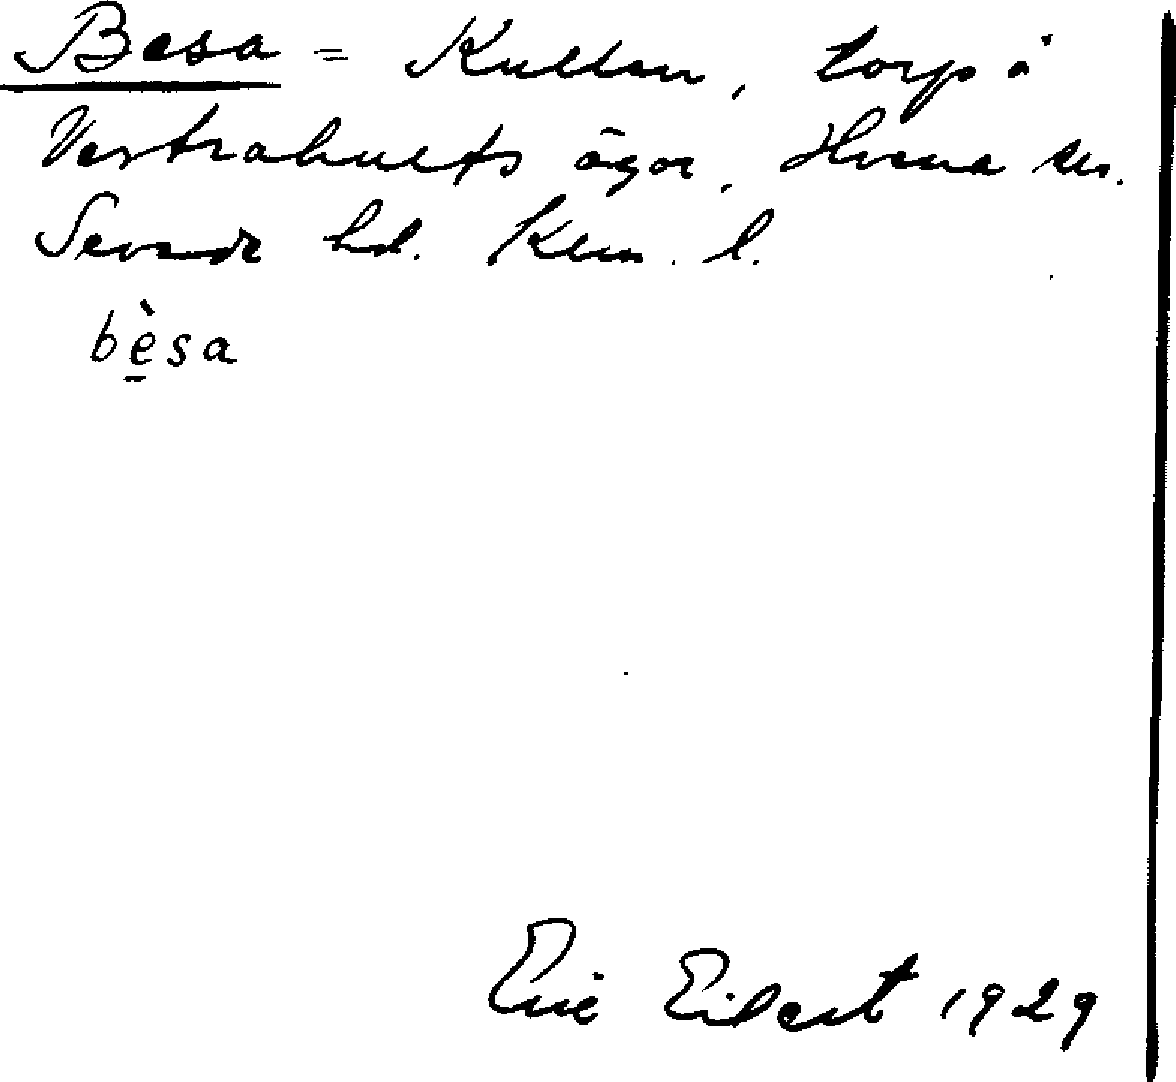 Besa = Kullen, torp å
Vestrahults ägor, Hvena sn.
Sevede hd. Klm. l.
bè̱sa
Eric Eilert 1929